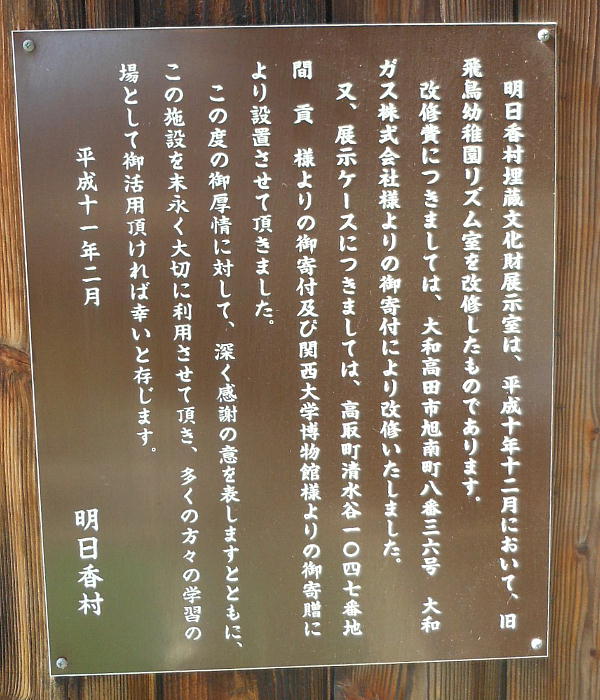 明日香村埋蔵文化財展示室は、平成十年十二月において、旧
飛鳥幼稚園リズム室を改修したものであります。
改修費につきましては、大和高田市旭南町八番三六号　大和
ガス株式会社様よりの御寄付により改修いたしました。
又、展示ケースにつきましては、高取町清水谷一〇四七番地
間　貢　様よりの御寄付及び関西大学博物館様よりの御寄贈に
より設置させて頂きました。
この度の御厚情に対して、深く感謝の意を表しますとともに、
この施設を末永く大切に利用させて頂き、多くの方々の学習の
場として御活用頂ければ幸いと存じます。
平成十一年二月
明日香村